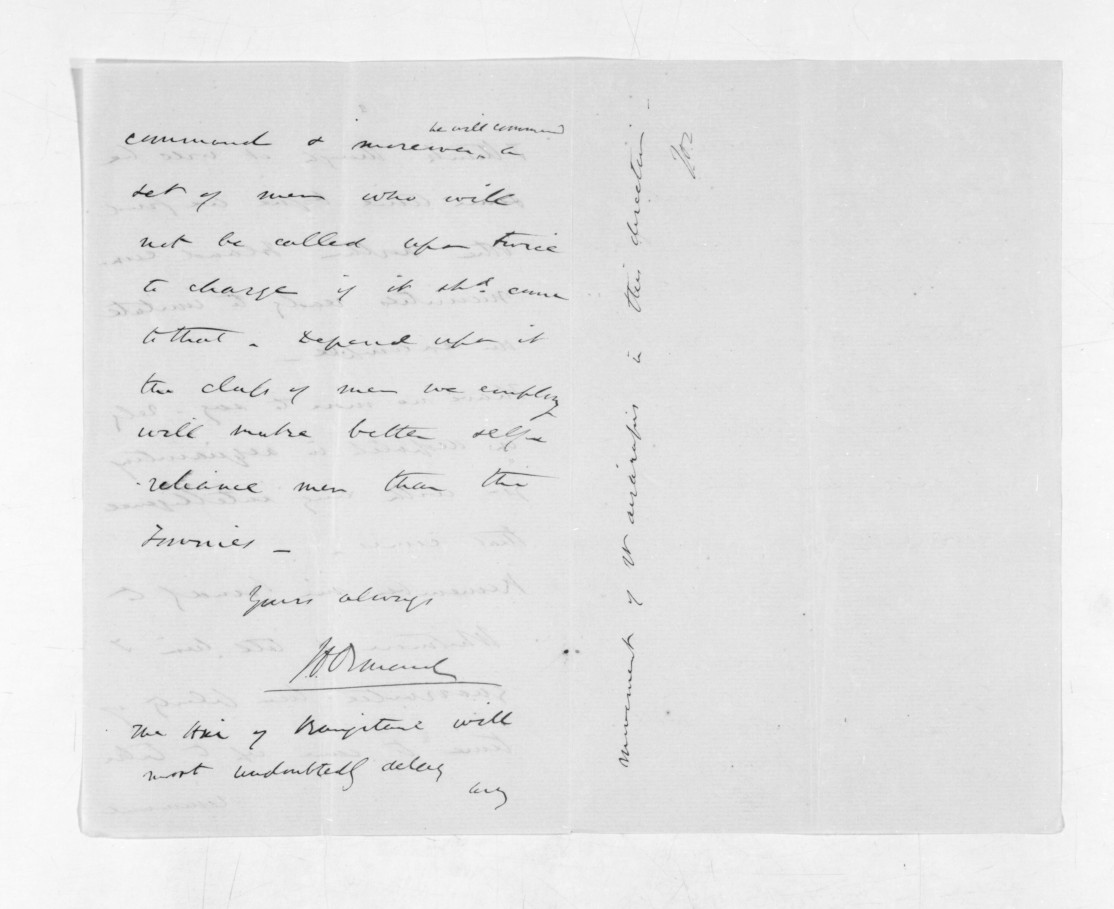 he will command
command & moreover a
set of men who will
not be called upon twice
to charge if it shd. come
to that. Depend upon it
the class of men we employ
will make better self
reliance men than the
Townies _
Yours always
J D Ormond
The Hui of Rangitane will
most undoubtedly delay
any
movement of Wairarapas in this direction -
JDO